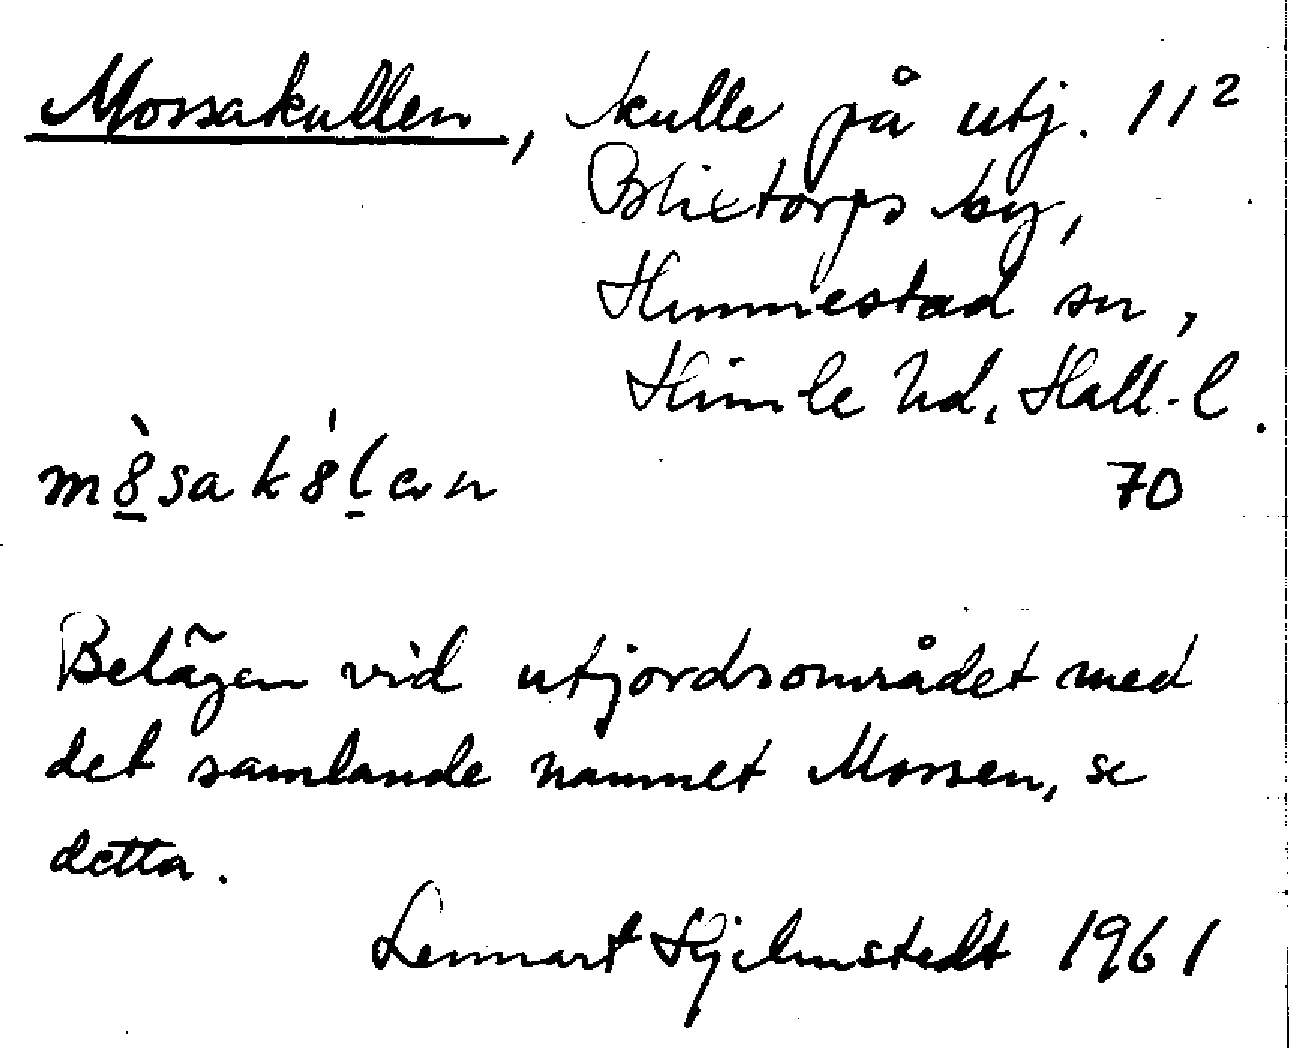 Mossakullen, kulle på utj. 11²
Blixtorps by,
Hunnestad sn,
Himle hd, Hall. l.
m8̠̀sak8́l̠ɐn
70
Belägen vid utjordsområdet med
det samlande namnet Mossen, se
detta.
Lennart Hjelmstedt 1961